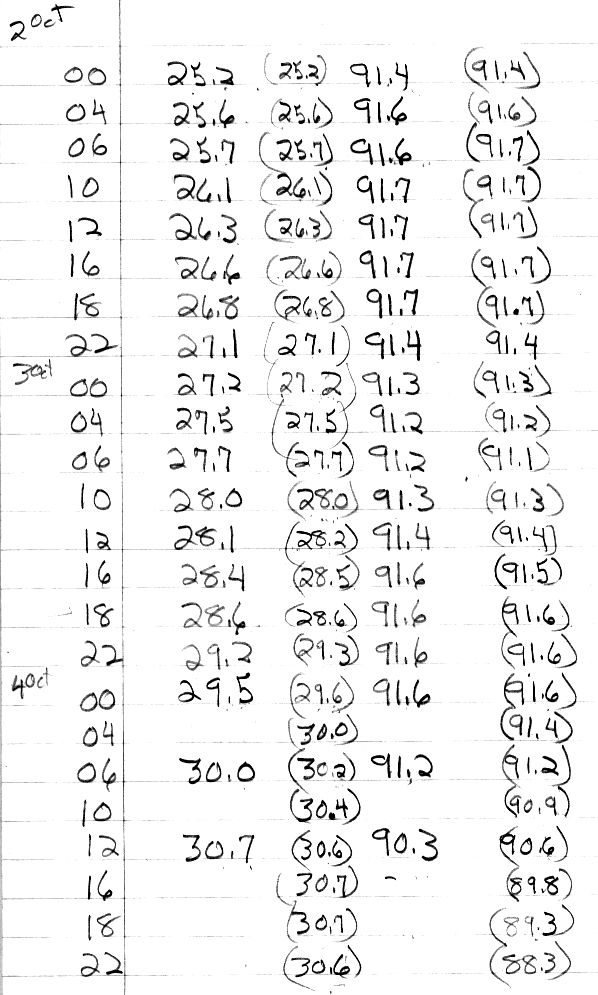 2 Oct
00 25.2 (25.2) 91.4 (91.4)
04 25.6 (25.6) 91.6 (91.6)
06 25.7 (25.7) 91.6 (91.7)
10 26.1 (26.1) 91.7 (91.7)
12 26.3 (26.3) 91.7 (91.7)
16 26.6 (26.6) 91.7 (91.7)
18 26.8 (26.8) 91.7 (91.7)
22 27.1 (27.1) 91.4 91.4
3 Oct 00 27.2 (27.2) 91.3 (91.3)
04 27.5 (27.5) 91.2 (91.2)
06 27.7 (27.7) 91.2 (91.1)
10 28.0 (28.0) 91.3 (91.3)
12 28.1 (28.2) 91.4 (91.4)
16 28.4 (28.5) 91.6 (91.5)
18 28.6 (28.6) 91.6 (91.6)
22 29.2 (29.3) 91.6 (91.6)
4 Oct 00 29.5 (29.6) 91.6 (91.6)
04 (30.0) (91.4)
06 30.0 (30.2) 91.2 (91.2)
10 (30.4) (90.9)
12 30.7 (30.6) 90.3 (90.6)
16 (30.7) - (89.8)
18 (30.7) (89.3)
22 (30.6) (88.3)